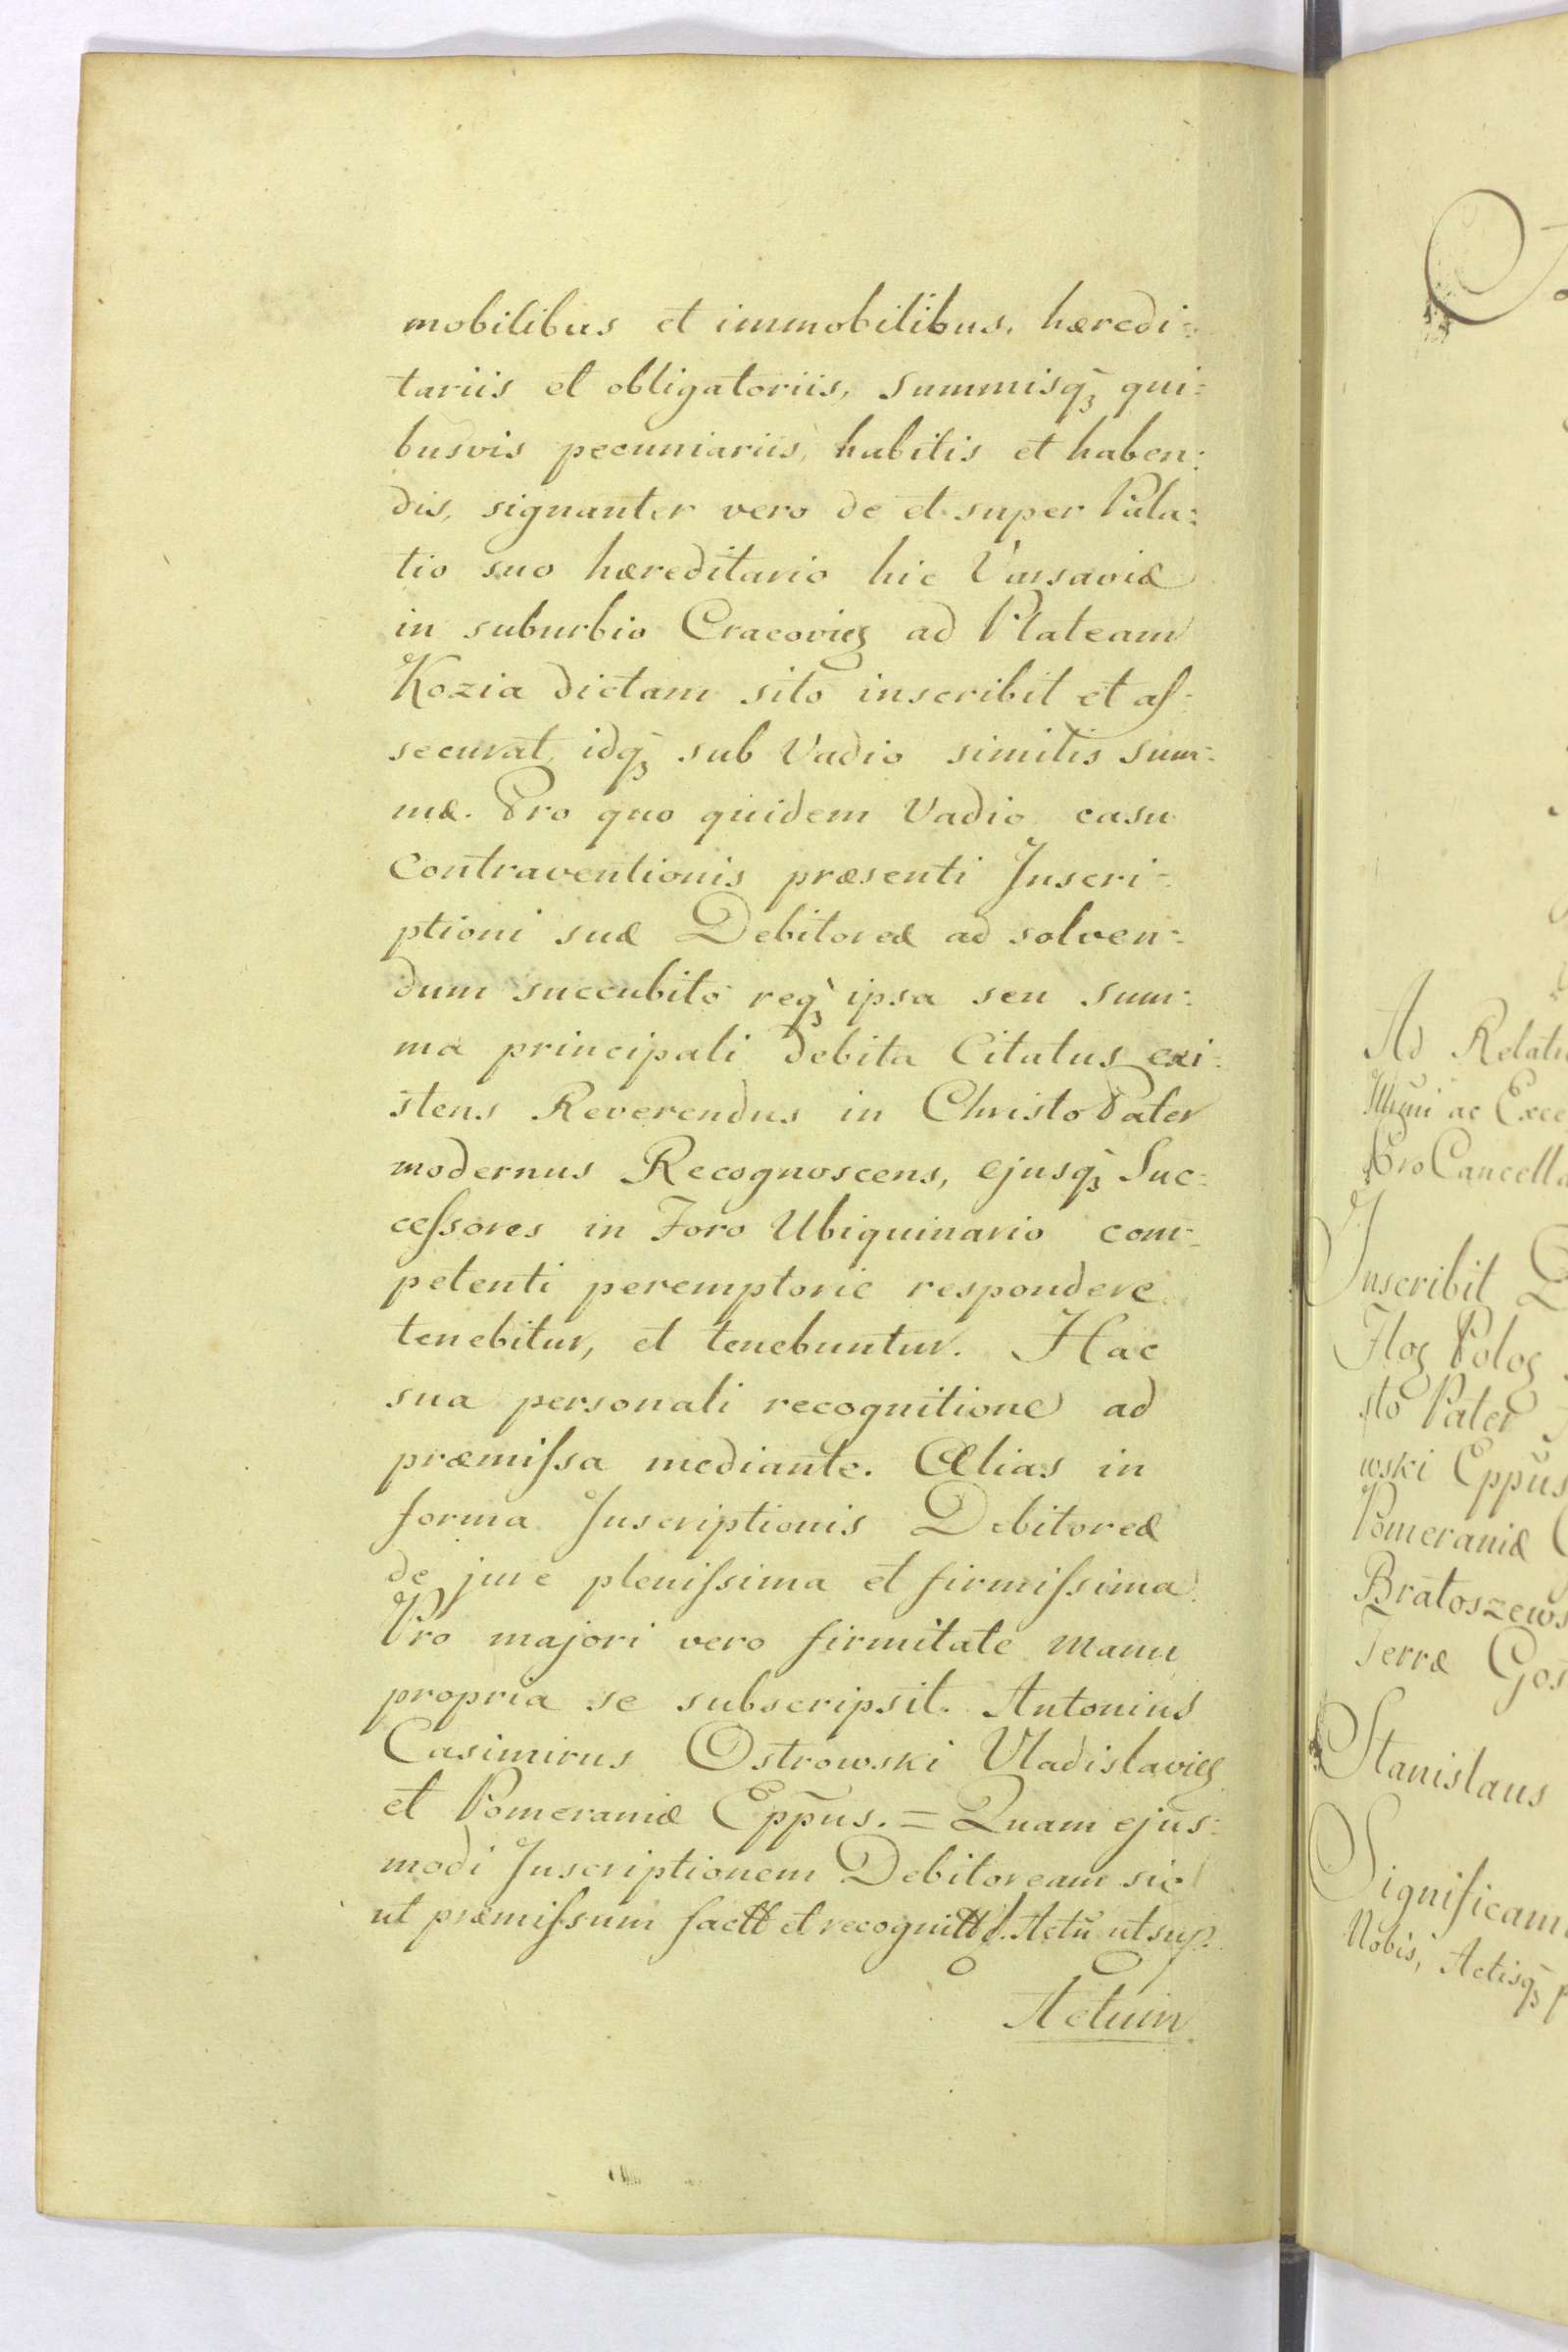 mobilibus et immobilibus, hæredi:
tariis et obligatoriis, summisq̀ꝫ qui:
busvis pecuniariis, habitis et haben:
dis, signanter vero de et super Pala:
tio suo hæreditario hic Varsaviæ
in suburbio Cracovieꝫ ad Plateam
Kozia dictam sito inscribit et aſ:
securat, idq̀ꝫ sub Vadio similis Sum:
mæ. Pro quo quidem Vadio casu
Contraventionis præsenti Inscri:
ptioni suæ Debitoreæ ad solven:
dum succubito req̀ꝫ ipsa seu sum:
ma principali debita Citatus exi:
stens Reverendus in Christo Pater
modernus Recognoscens, ejusq̀ꝫ Suc:
ceſsores in Foro Ubiquinario com:
petenti peremptorie respondere
tenebitur, et tenebuntur. Hac
sua personali recognitione ad
præmiſsa mediante. Alias in
forma Inscriptionis Debitoreæ
de jure pleniſsima et firmiſsima
Pro majori vero firmitate manu
propria se subscripsit. Antonius
Casimirus Ostrowski Vladislavieꝫ
et Pomeraniæ Epp̄us. = Quam ejus:
modi Inscriptionem Debitoream sic
ut præmiſsum Actū ut sup.
Actum
Ad
ac
Pro
Inscribit
Pater
wski Epp̄us
Pomeraniæ
Terræ
Stanislaus
Nobis, Actisq̀ꝫ